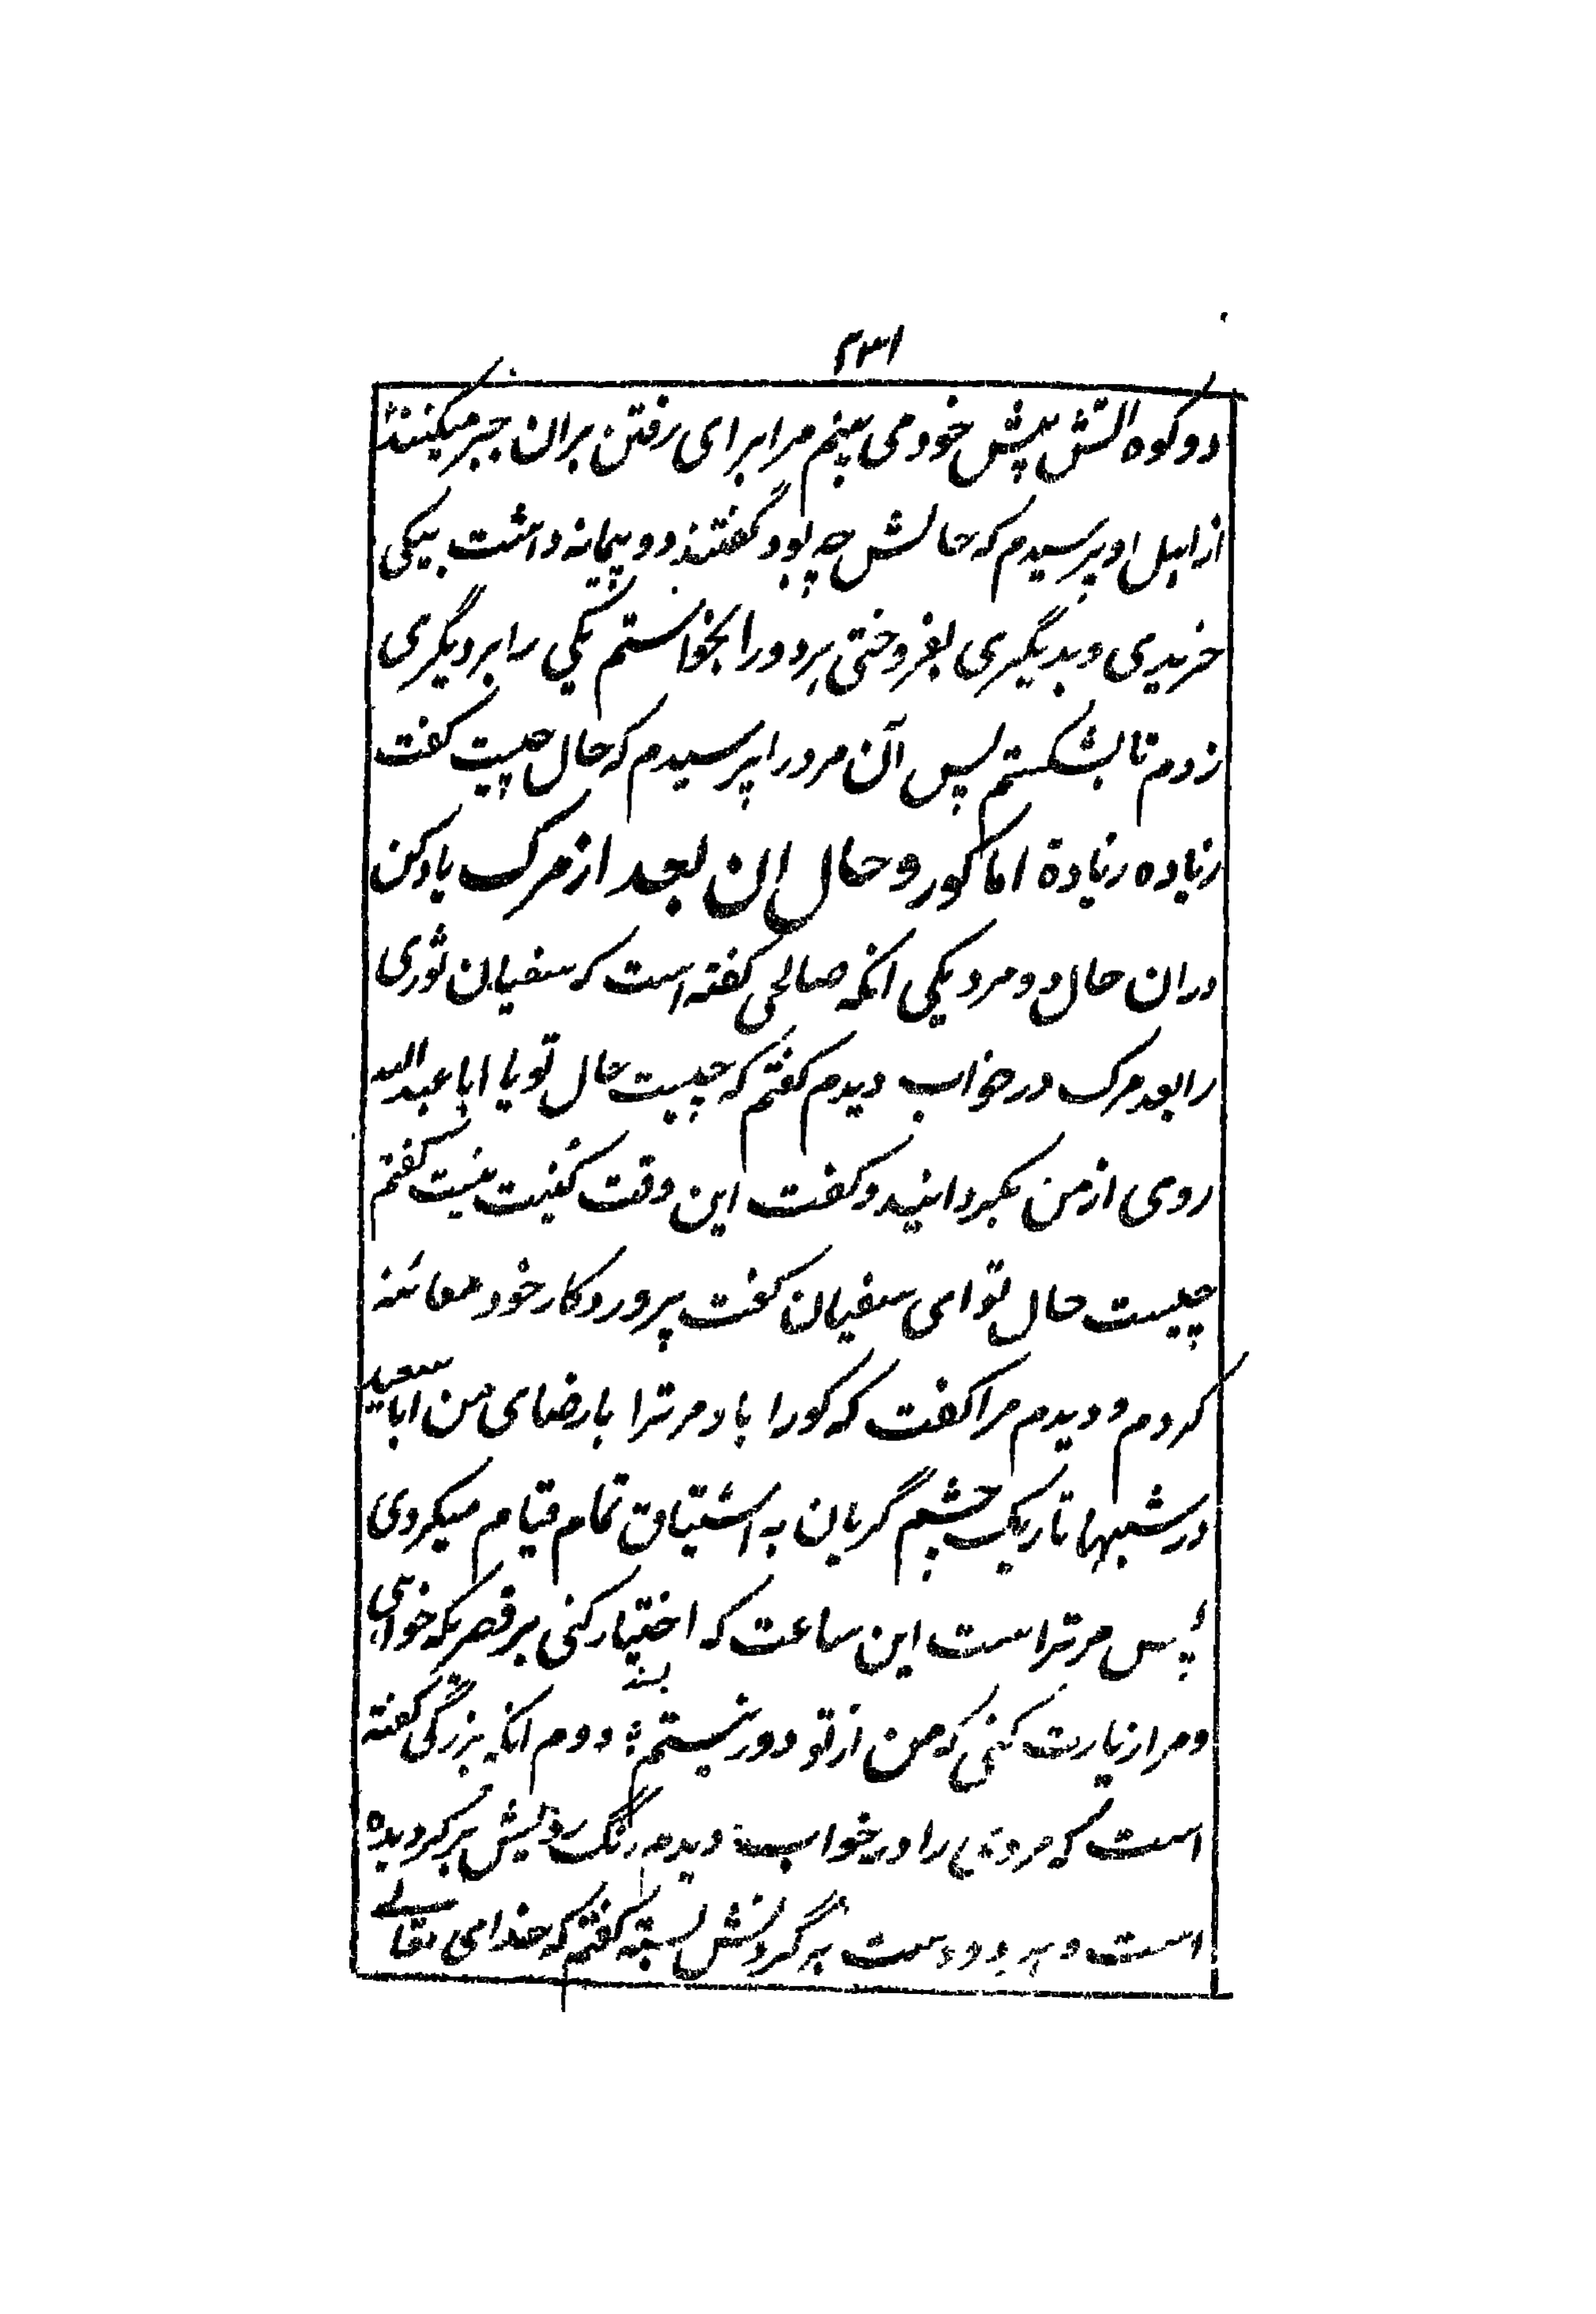 ۲۳۱
دو کوه اتش پیش خود می بینم مرا برای رفتن بران جبر میکنند
از اهل او پرسیدم که حالش چه بود گفتند دو پیمانه داشت بیکی
خریدی و بدیگری بفروختی هردو را بخواستم یکی را بر دیگری
زدم تا بشکستم پس آن مرد را پرسیدم که حال چیست کفت
زیاده زیادة اما کور و حال ان بعد از مرک یاد کن
دران حال دو مرد یکی انکه صالحی کفته است که سفیان ثوری
را بعد مرک در خواب دیدم کفتم که چیست حال تو یا ابا عبد الله
روی از من بکردانید و کفت این وقت کنیت نیست کفتم
چیست حال تو ای سفیان کفت پروردکار خود معائنه
کردم و دیدم مرا کفت که کورا باد مر ترا با رضای من ابا سعید
در شبها تاریک چشم گریان به اشتیاق تمام قیام میکردی
پس مر تراست این ساعت که اختیار کنی هر قصریکه خواهی
و مرا زیارت کنی که من از تو دور نیستم بند دوم انکه بزرگی کفته
است که مردی را در خواب دیدم رنگ رویش بر کردیده
است و هر دو دست بر گردنش بسته کفتم که خدای تعالے